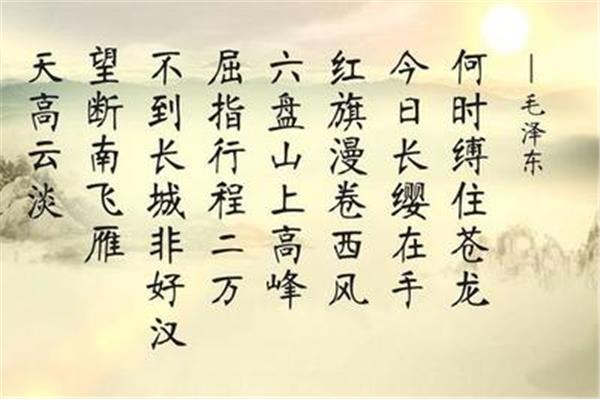 天高云淡
望断南飞雁
不到长城非好汉
屈指行程二万
六盘山上高峰
红旗漫卷西风
今日长缨在手
何时缚住苍龙
—毛泽东